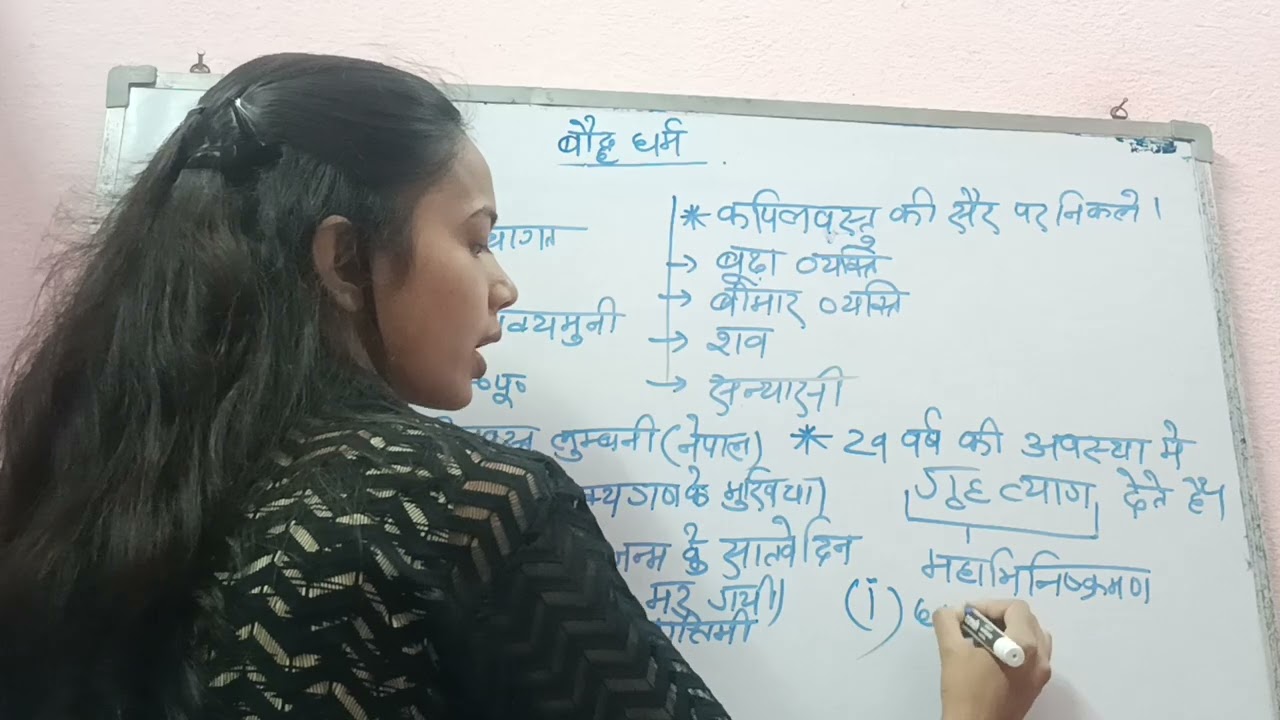 बौद्ध धर्म
थागत
क्यमुनी
॰पू॰
लुम्बनी (नेपाल)
क्यगण के मुखिया)
जन्म के सातवे दिन
मर गयी)
* कपिलवस्तु की सैर पर निकले।
→ बूढ़ा व्यक्ति
→ बीमार व्यक्ति
→ शव
→ सन्यासी
* 29 वर्ष की अवस्था मे
गृह त्याग देते है।
महाभिनिष्क्रमण
(i)